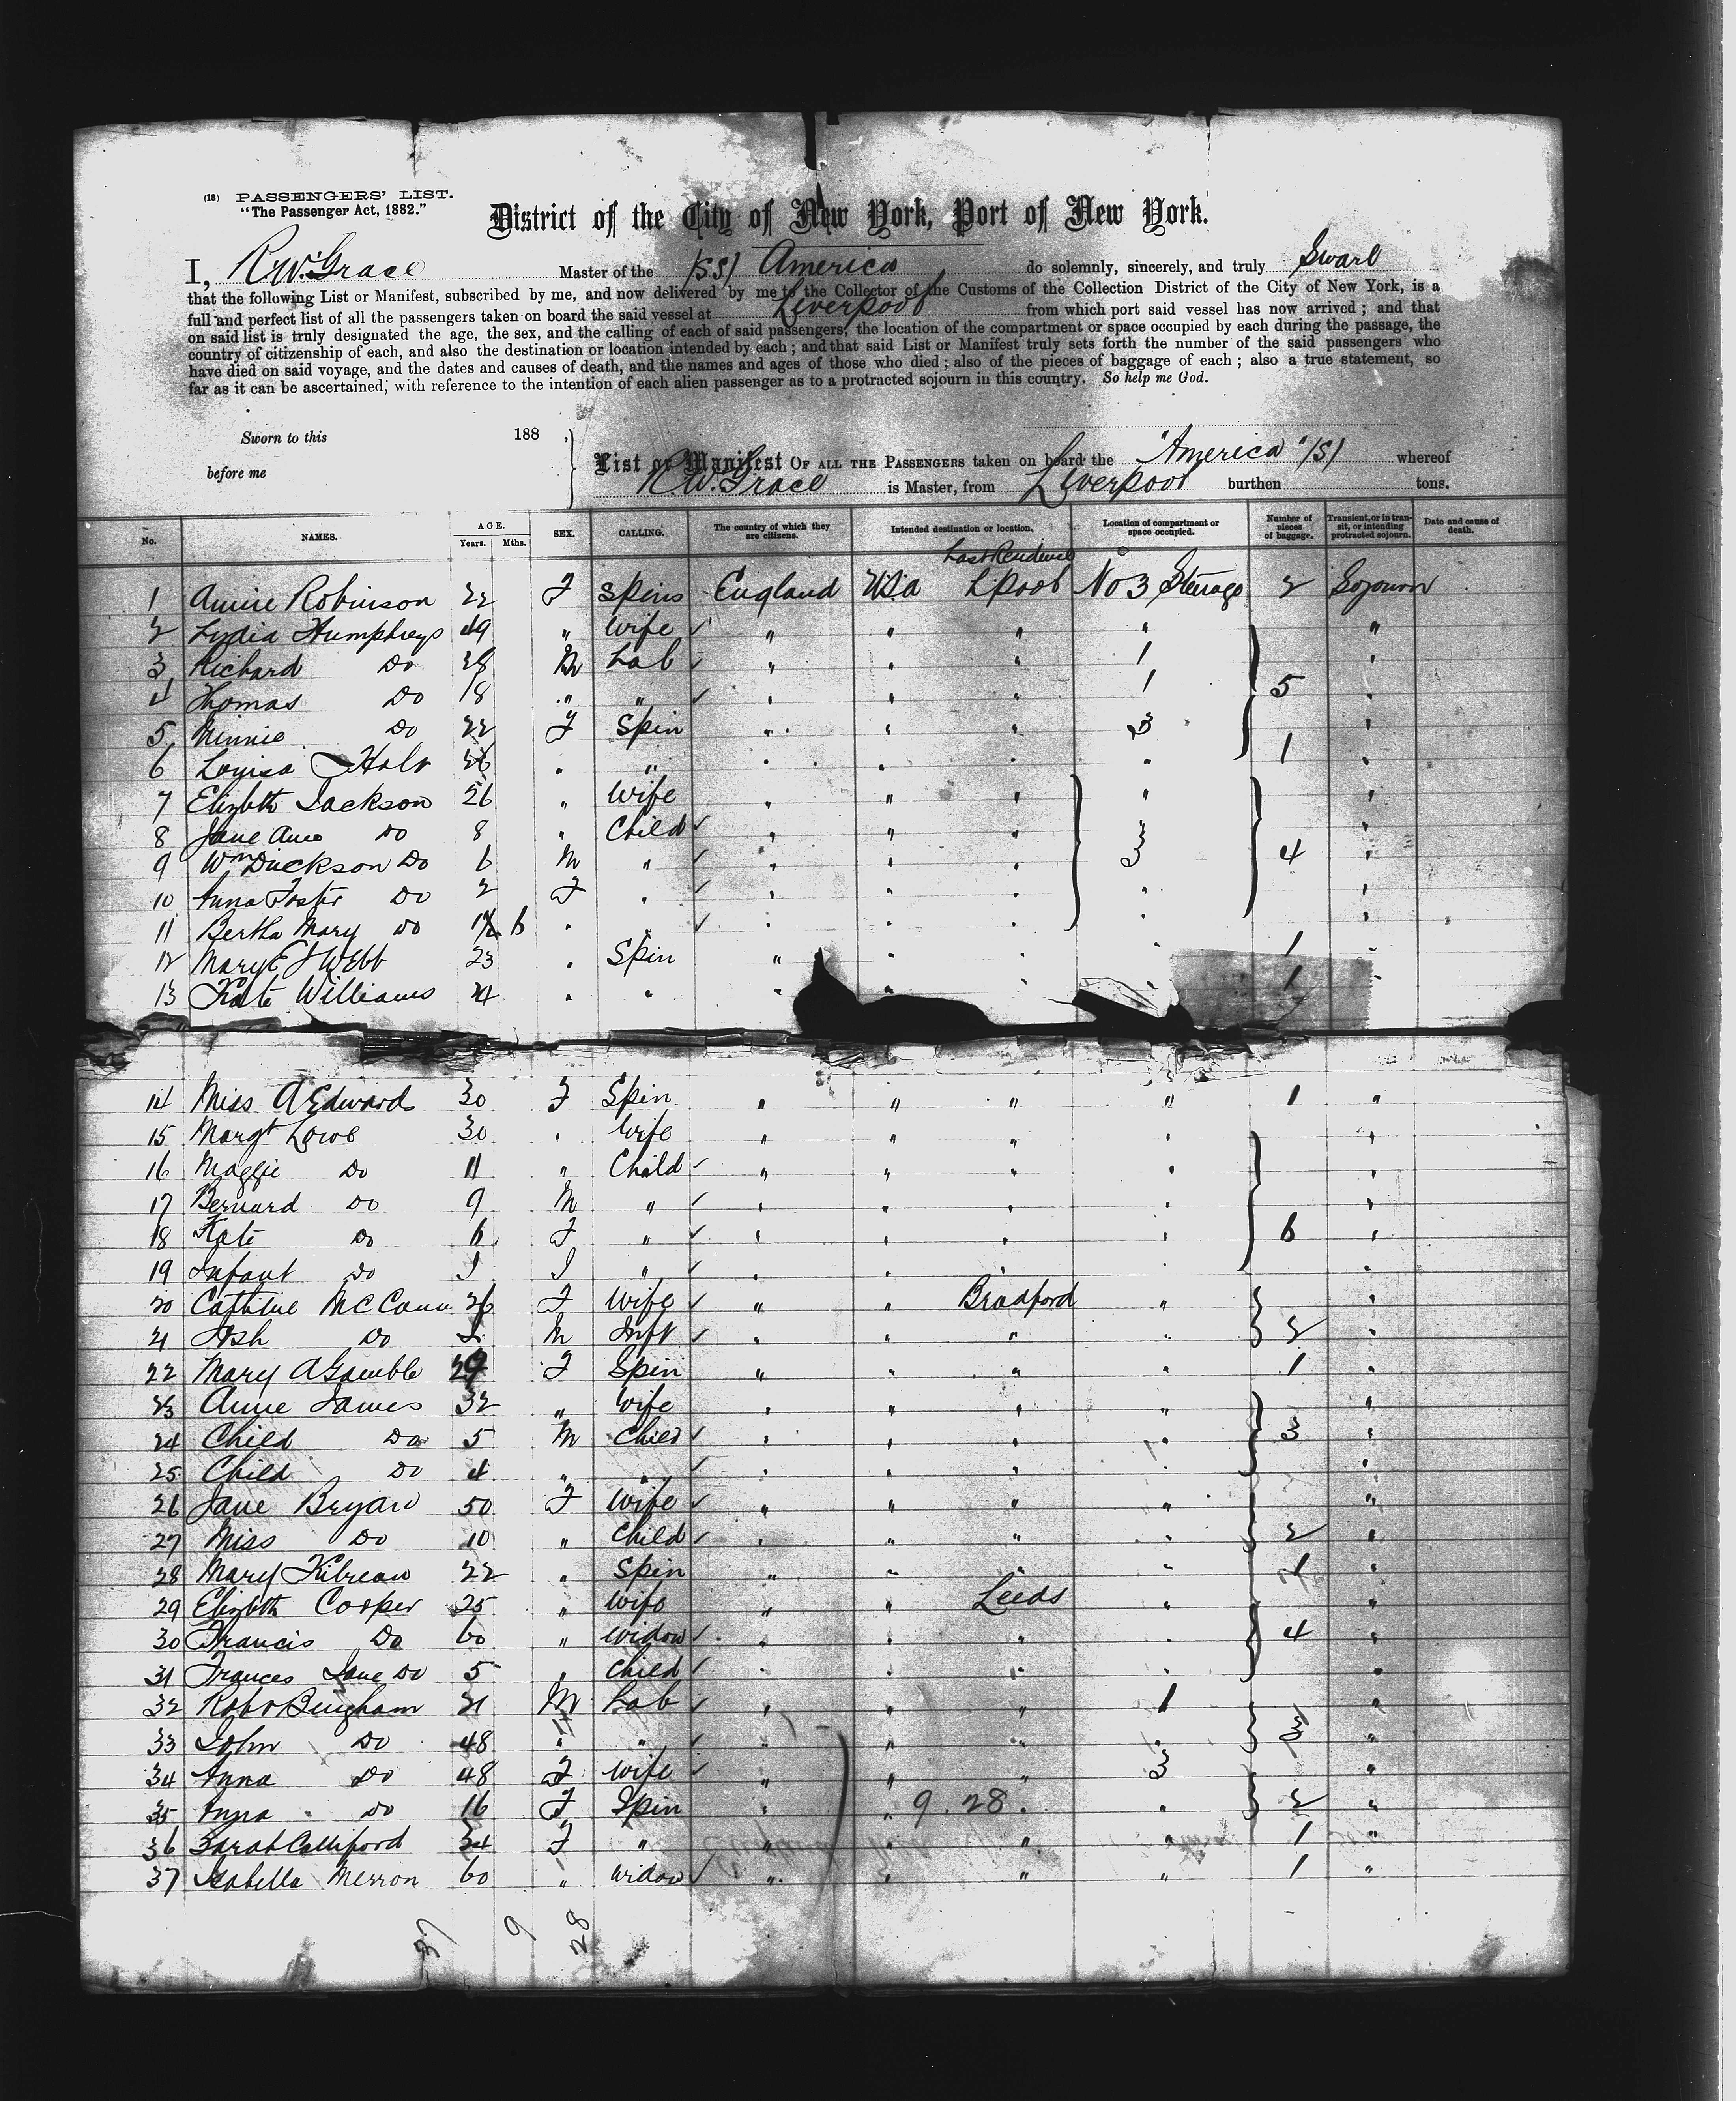 (18) PASSENGERS' LIST.
"The Passenger Act, 1882."
District of the City of New York, Port of New York.
I, R.W. Grace Master of the (SS) America do solemnly, sincerely, and truly Swear
that the following List or Manifest, subscribed by me, and now delivered by me to the Collector of the Customs of the Collection District of the City of New York, is a
full and perfect list of all the passengers taken on board the said vessel at Liverpool from which port said vessel has now arrived; and that
on said list is truly designated the age, the sex, and the calling of each of said passengers, the location of the compartment or space occupied by each during the passage, the
country of citizenship of each, and also the destination or location intended by each; and that said List or Manifest truly sets forth the number of the said passengers who
have died on said voyage, and the dates and causes of death, and the names and ages of those who died; also of the pieces of baggage of each; also a true statement, so
far as it can be ascertained, with reference to the intention of each alien passenger as to a protracted sojourn in this country. So help me God.
Sworn to this 188 ,
before me
List or Manifest OF ALL THE PASSENGERS taken on board the "America" (S) whereof
R.W. Grace is Master, from Liverpool burthen tons.
No. NAMES. AGE. Years. Mths. SEX. CALLING. The country of which they are citizens. Intended destination or location. Location of compartment or space occupied. Number of pieces of baggage. Transient, or in transit, or intending protracted sojourn. Date and cause of death.
Last Residence
1 Annie Robinson 22 F Spins England USA Lpool No 3 Steerage 2 Sojourn
2 Lydia Humphreys 49 " Wife " " " " "
3 Richard Do 28 M Lab " " " 1 "
4 Thomas Do 18 " " " " " 1 5 "
5 Minnie Do 22 F Spin " " " 3 "
6 Louisa Holt 26 " " " " " " 1 "
7 Elizbth Jackson 26 " Wife " " " " "
8 Jane Ann Do 8 " Child " " " 3 "
9 Wm Duckson Do 6 M " " " " 4 "
10 Anna Foster Do 2 F " " " " " "
11 Bertha Mary Do 6 " " " " " "
12 Mary E J Webb 23 " Spin " " " " 1 "
13 Kate Williams 24 " " " " 1 "
14 Miss A Edwards 30 F Spin " " " " 1 "
15 Margt Lowe 30 " Wife " " " " "
16 Maggie Do 11 " Child " " " " "
17 Bernard Do 9 M " " " " " "
18 Kate Do 6 F " " " " " 6 "
19 Infant Do " " " " " "
20 Cathine McCann 26 F Wife " " Bradford " "
21 Jsh Do M Inft " " " " 2 "
22 Mary A Gamble 29 F Spin " " " " 1 "
23 Anne James 32 " Wife " " " " "
24 Child Do 5 M Child " " " " 3 "
25 Child Do 4 " " " " " " "
26 Jane Bryan 50 F Wife " " " " "
27 Miss Do 10 " Child " " " " 2 "
28 Mary Kilrean 22 " Spin " " " " 1 "
29 Elizbth Cooper 25 " Wife " " Leeds " "
30 Francis Do 60 " Widow " " " " 4 "
31 Frances Jane Do 5 " Child " " " " "
32 Robt Bingham 21 M Lab " " " 1 "
33 John Do 48 " " " " " " 3 "
34 Anna Do 48 F Wife " " " 3 "
35 Anna Do 16 F Spin " " 9.28 " " 2 "
36 Sarah Calliford 34 F " " " " " 1 "
37 Isabella Merron 60 " Widow " " " " 1 "
37 9 28